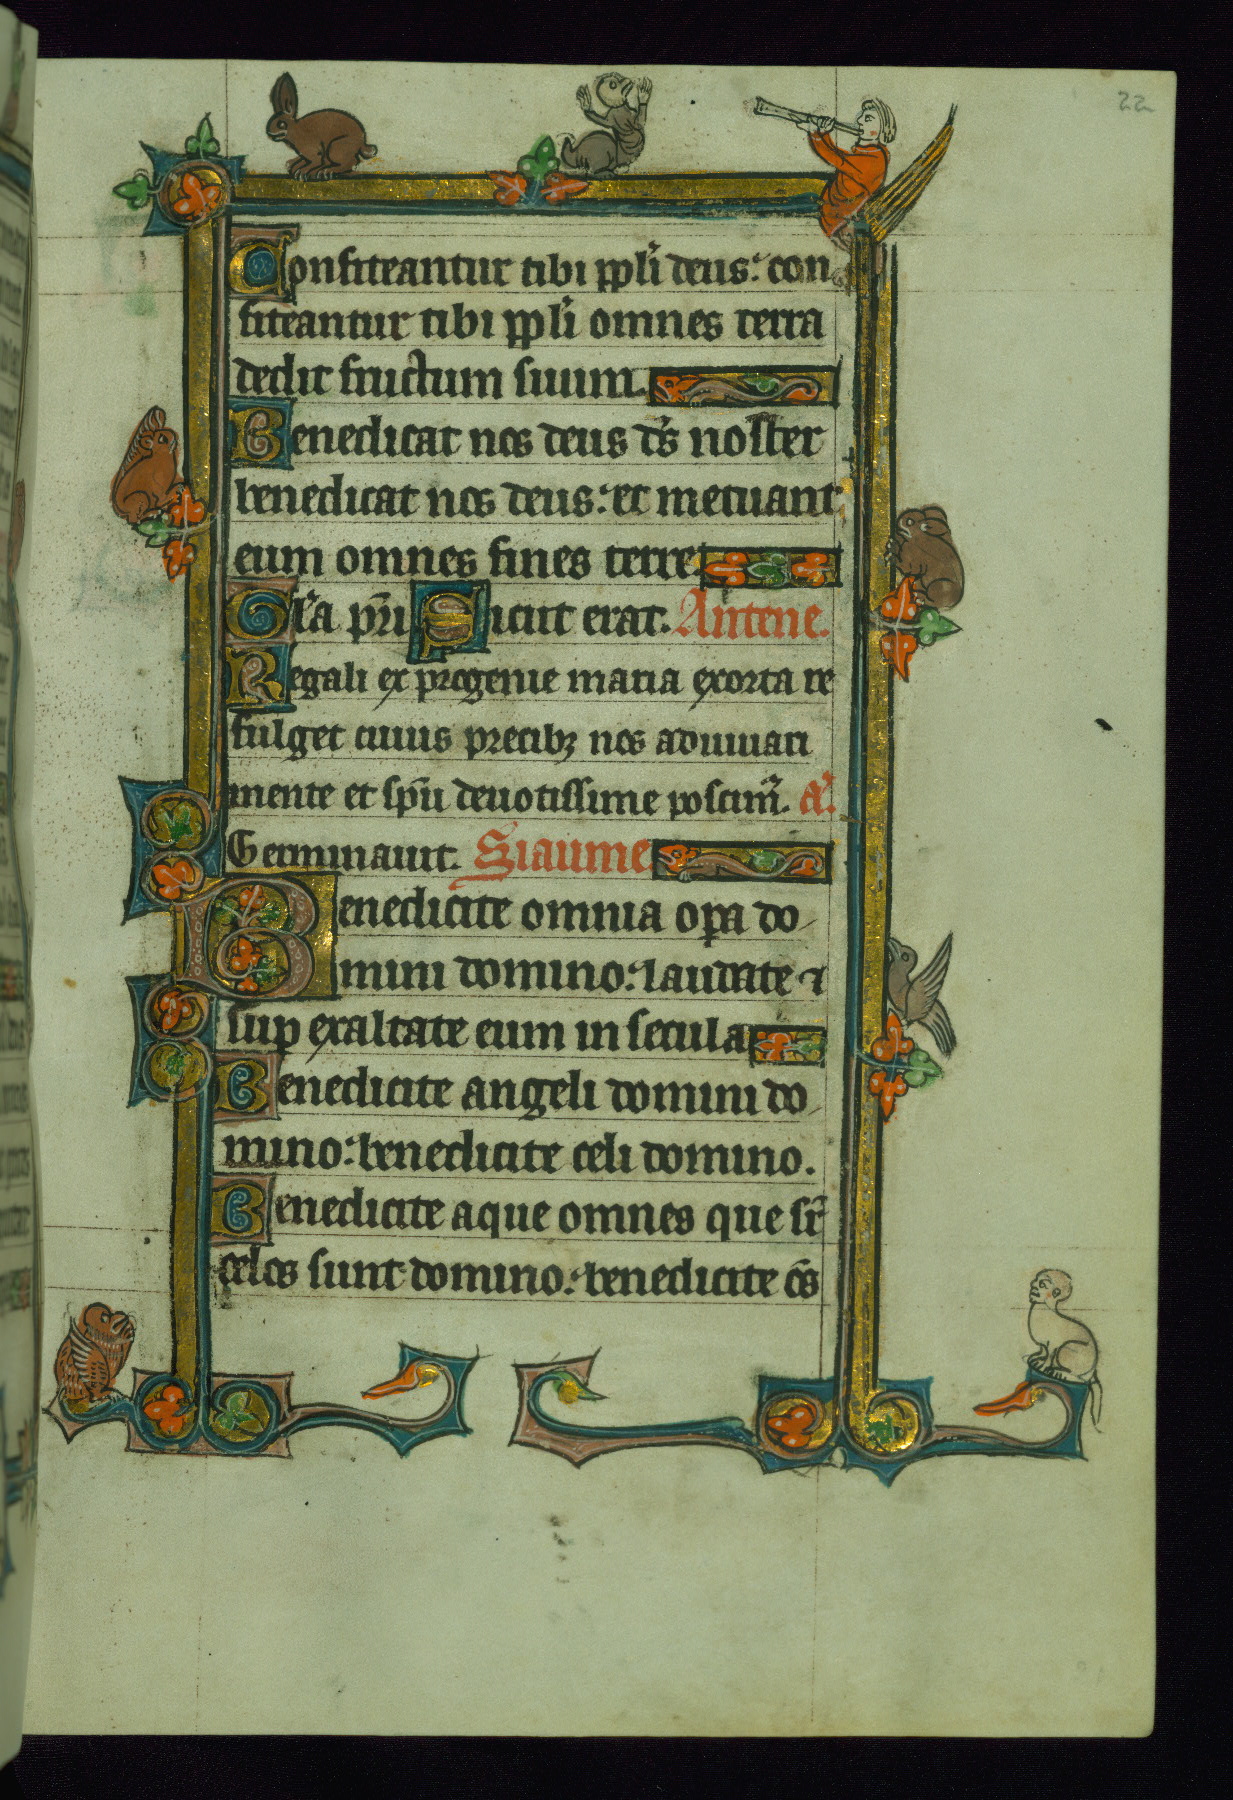 22
Confiteantur tibi ppl̓i deus: con
fiteantur tibi ppl̓i omnes terra
dedit fructum suum.
Benedicat nos deus d̄s noster
benedicat nos deus: et metuant
eum omnes fines terre
Gl̓a pr̄i Sicut erat. Antene.
Regali ex progenie maria exorta re
fulget cuius precibꝫ nos adiuuari
mente et sp̄u deuotissime poscim̓. a̓.
Germinauit. Siaume
Benedicite omnia oꝑa do
mini domino: laudate ⁊
suꝑ exaltate eum in secula
Benedicite angeli domini do
mino: benedicite celi domino.
Benedicite aque omnes que sr̄
celos sunt domino: benedicite o̅s